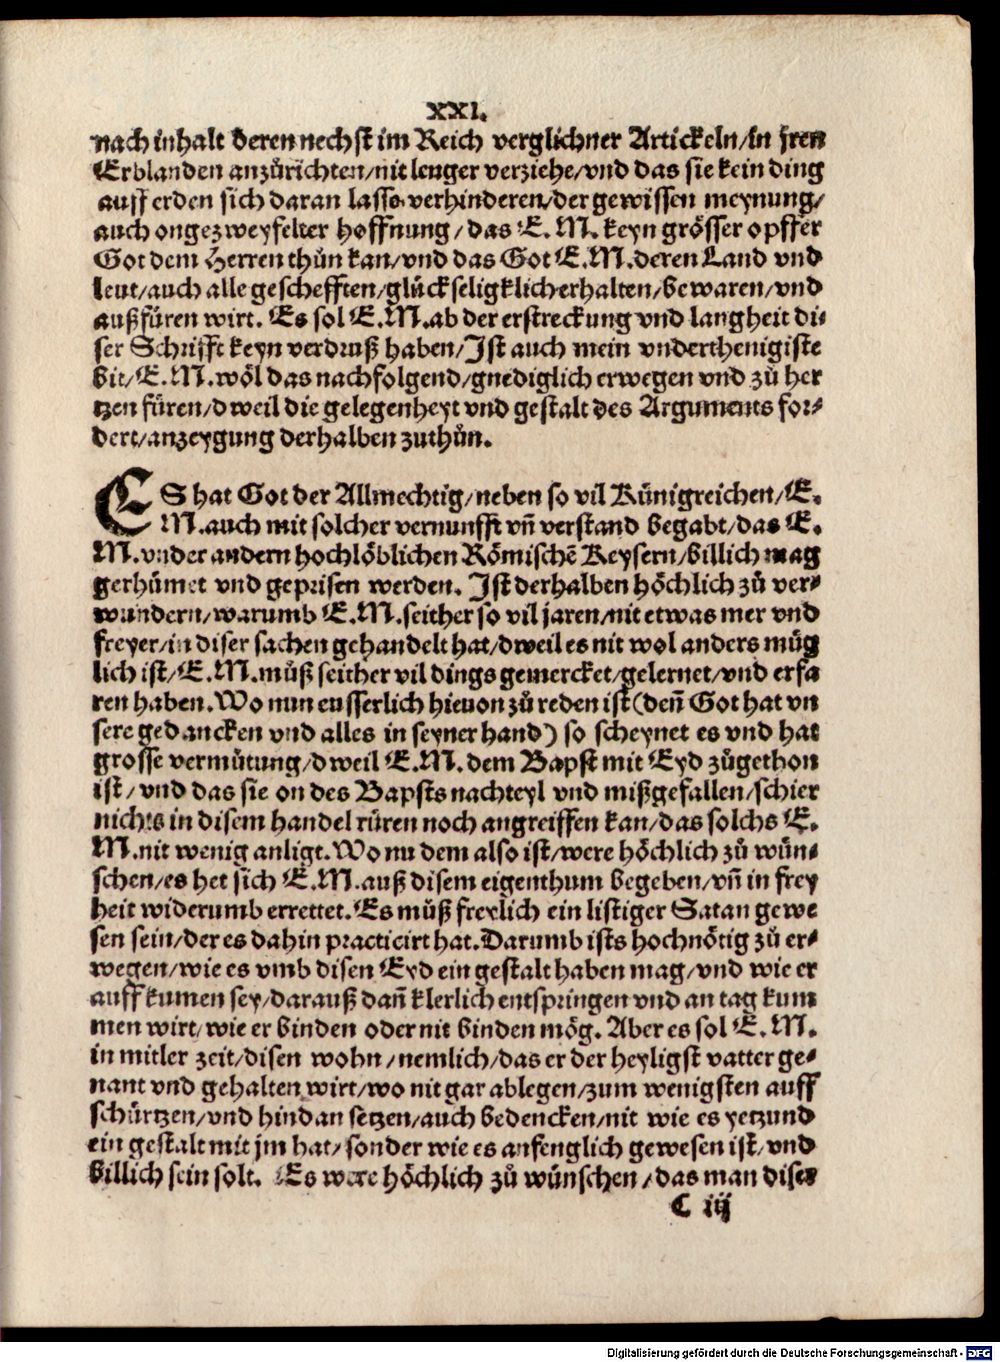 XXI.
nach inhalt deren nechst im Reich verglichner Artickeln/in jren
Erblanden anzůrichten/nit lenger verziehe/vnd das sie kein ding
auff erden sich daran lasse verhinderen/der gewissen meynung/
auch ongezweyfelter hoffnung/das E. M. keyn grösser opffer
Got dem Herren thůn kan/vnd das Got E.M.deren Land vnd
leut/auch alle geschefften/glückseligklich erhalten/bewaren/vnd
außfüren wirt. Es sol E.M.ab der erstreckung vnd langheit di⸗
ser Schrifft keyn verdruß haben/Ist auch mein vnderthenigiste
bit/E.M.wöl das nachfolgend/gnediglich erwegen vnd zů her
tzen füren/dweil die gelegenheyt vnd gestalt des Arguments for⸗
dert/anzeygung derhalben zuthůn.
ES hat Got der Allmechtig/neben so vil Künigreichen/E.
M.auch mit solcher vernunfft vñ verstand begabt/das E.
M.vnder andern hochlöblichen Römischē Keysern/billich mag
gerhümet vnd geprisen werden. Ist derhalben höchlich zů ver⸗
wundern/warumb E.M.seither so vil jaren/nit etwas mer vnd
freyer/in diser sachen gehandelt hat/dweil es nit wol anders müg
lich ist/E.M.můß seither vil dings gemercket/gelernet/vnd erfa
ren haben.Wo nun eusserlich hieuon zů reden ist(deñ Got hat vn
sere gedancken vnd alles in seyner hand) so scheynet es vnd hat
grosse vermůtung/dweil E.M.dem Bapst mit Eyd zůgethon
ist/vnd das sie on des Bapsts nachteyl vnd mißgefallen/schier
nichts in disem handel rüren noch angreiffen kan/das solchs E.
M.nit wenig anligt.Wo nu dem also ist/were höchlich zů wün⸗
schen/es het sich E.M.auß disem eigenthum begeben/vñ in frey
heit widerumb errettet.Es můß freylich ein listiger Satan gewe
sen sein/der es dahin practicirt hat.Darumb ists hochnötig zů er⸗
wegen/wie es vmb disen Eyd ein gestalt haben mag/vnd wie er
auff kumen sey/darauß dañ klerlich entspringen vnd an tag kum
men wirt/wie er binden oder nit binden mög. Aber es sol E.M.
in mitler zeit/disen wohn/nemlich/das er der heyligst vatter ge⸗
nant vnd gehalten wirt/wo nit gar ablegen/zum wenigsten auff
schürtzen/vnd hindan setzen/auch bedencken/nit wie es yetzund
ein gestalt mit jm hat/sonder wie es anfenglich gewesen ist/vnd
billich sein solt. Es were höchlich zů wünschen/das man diser
C iij
Digitalisierung gefördert durch die Deutsche Forschungsgemeinschaft - DFG